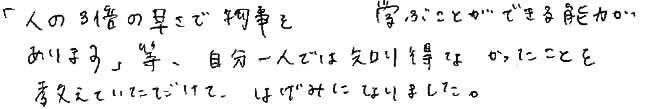 「人の3倍の早さで物事を 学ぶことができる能力が
あります」等、自分一人では知り得なかったことを
教えていただけて、はげみになりました。